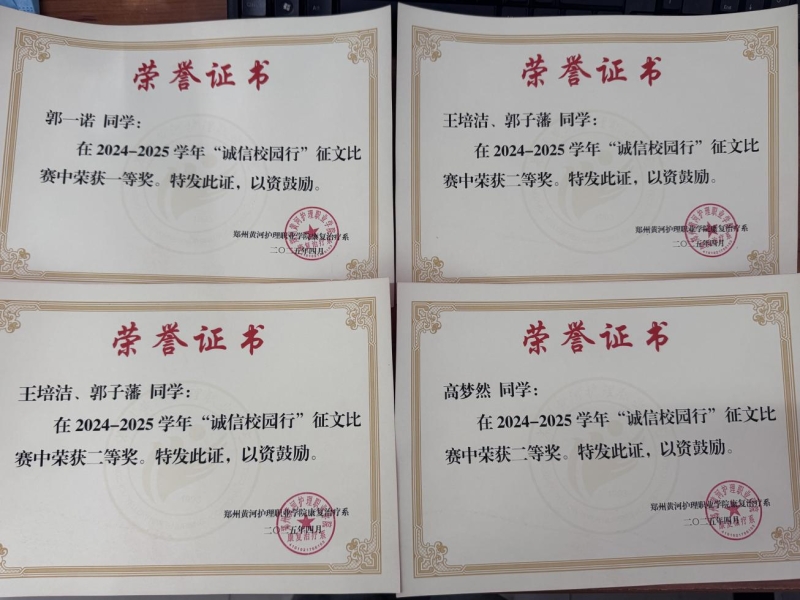 荣誉证书
郭一诺 同学：
在 2024-2025 学年“诚信校园行”征文比
赛中荣获一等奖。特发此证，以资鼓励。
郑州黄河护理职业学院康复治疗系
二〇二五年四月
荣誉证书
王培洁、郭子藩 同学：
在 2024-2025 学年“诚信校园行”征文比
赛中荣获二等奖。特发此证，以资鼓励。
郑州黄河护理职业学院康复治疗系
二〇二五年四月
荣誉证书
王培洁、郭子藩 同学：
在 2024-2025 学年“诚信校园行”征文比
赛中荣获二等奖。特发此证，以资鼓励。
郑州黄河护理职业学院康复治疗系
二〇二五年四月
康复治疗系
荣誉证书
高梦然 同学：
在 2024-2025 学年“诚信校园行”征文比
赛中荣获二等奖。特发此证，以资鼓励。
郑州黄河护理职业学院康复治疗系
二〇二五年四月
康复治疗系